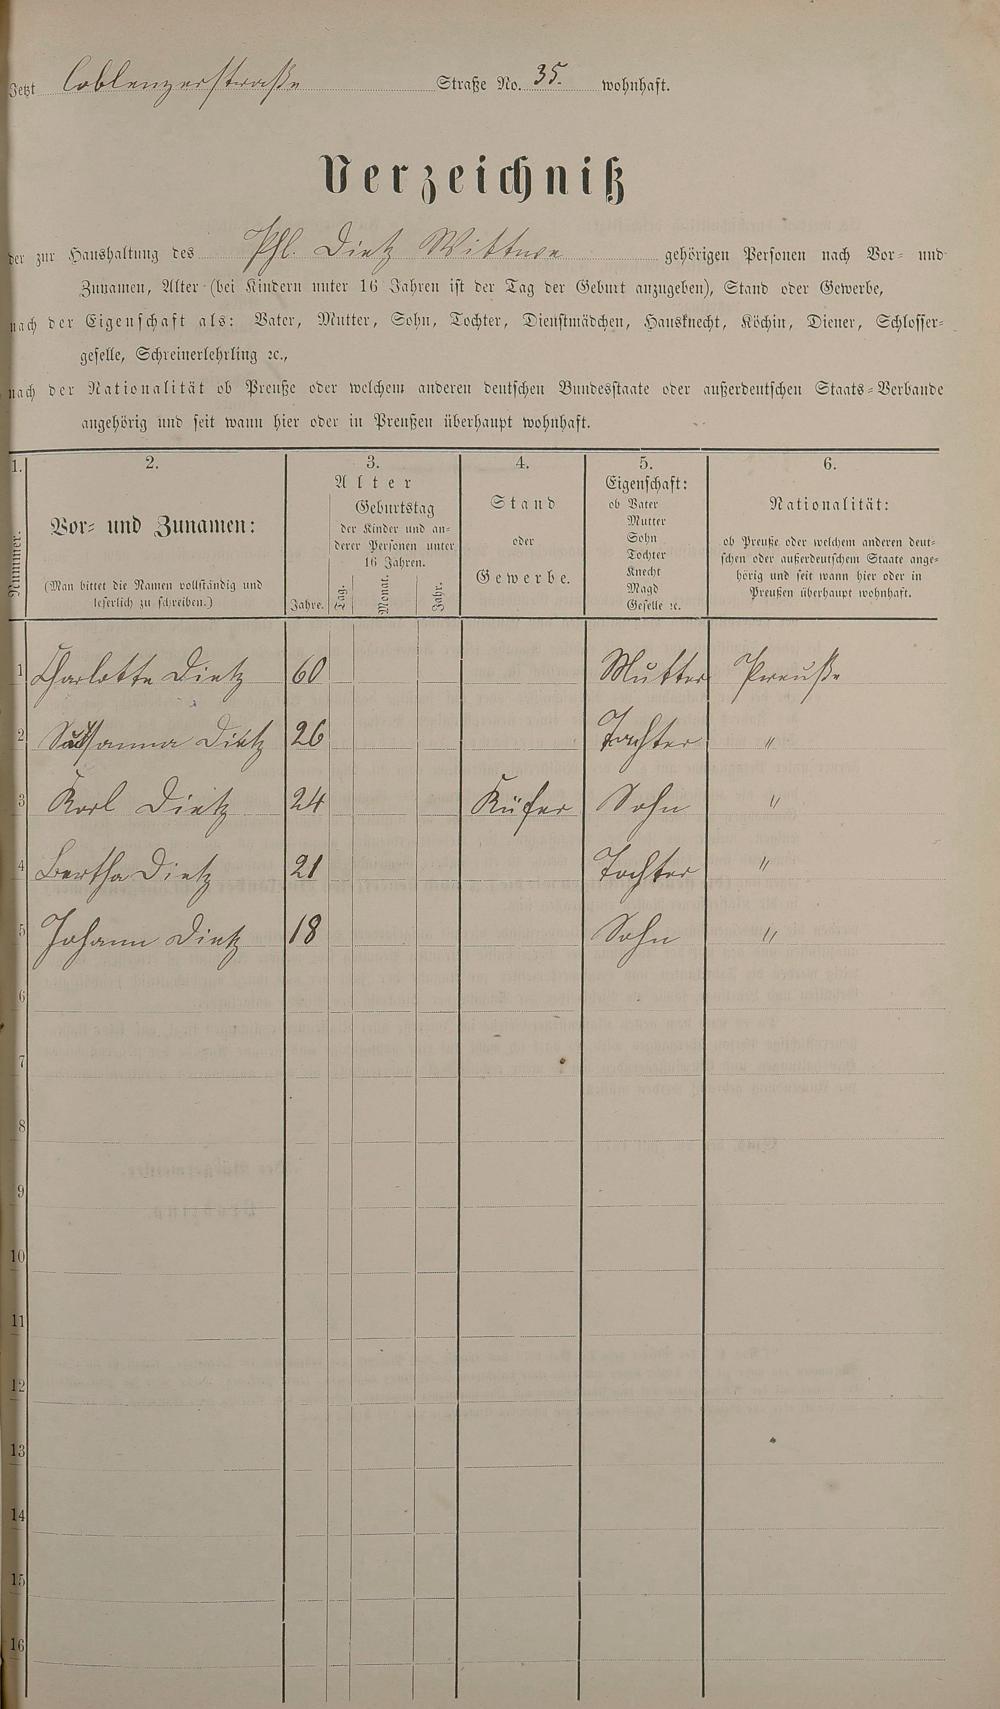 Jetzt Coblenzerstraße Straße No. 35. wohnhaft.
Verzeichniß
der zur Haushaltung des Phl. Dietz Wittwe gehörigen Personen nach Vor- und
Zunamen, Alter (bei Kindern unter 16 Jahren ist der Tag der Geburt anzugeben), Stand oder Gewerbe,
nach der Eigenschaft als: Vater, Mutter, Sohn, Tochter, Dienstmädchen, Hausknecht, Köchin, Diener, Schlosser-
geselle, Schreinerlehrling ꝛc.,
nach der Nationalität ob Preuße oder welchem anderen deutschen Bundesstaate oder außerdeutschen Staats-Verbande
angehörig und seit wann hier oder in Preußen überhaupt wohnhaft.
1. 2. 3. 4. 5. 6.
Nummer.
Vor- und Zunamen:
(Man bittet die Namen vollständig und
leserlich zu schreiben.)
Alter
Geburtstag
der Kinder und an-
derer Personen unter
16 Jahren.
Jahre. Tag. Monat. Jahr.
Stand
oder
Gewerbe.
Eigenschaft:
ob Vater
Mutter
Sohn
Tochter
Knecht
Magd
Geselle ꝛc.
Nationalität:
ob Preuße oder welchem anderen deut-
schen oder außerdeutschem Staate ange-
hörig und seit wann hier oder in
Preußen überhaupt wohnhaft.
1 Charlotte Dietz 60 Mutter Preuße
2 Susanna Dietz 26 Tochter "
3 Karl Dietz 24 Küfer Sohn "
4 Bertha Dietz 21 Tochter "
5 Johann Dietz 18 Sohn "
6
7
8
9
10
11
12
13
14
15
16